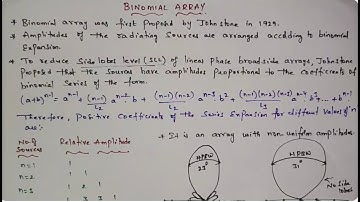 BINOMIAL ARRAY
* Binomial array was first proposed by Johnstone in 1929.
* Amplitudes of the radiating sources are arranged according to binomial
Expansion.
* To reduce Side lobe level (SLL) of linear phase broadside arrays, Johnstone
proposed that the sources have amplitudes proportional to the coefficients of
binomial series of the form.
Therefore, Positive Coefficients of the Series Expansion for different values of n
are:
No. of Sources Relative Amplitude
* It is an array with non uniform amplitudes
n=1 1
n=2 1 1
n=3 1 2 1
1 3 3 1
HPBW
23°
HPBW
31°
No side
lobes